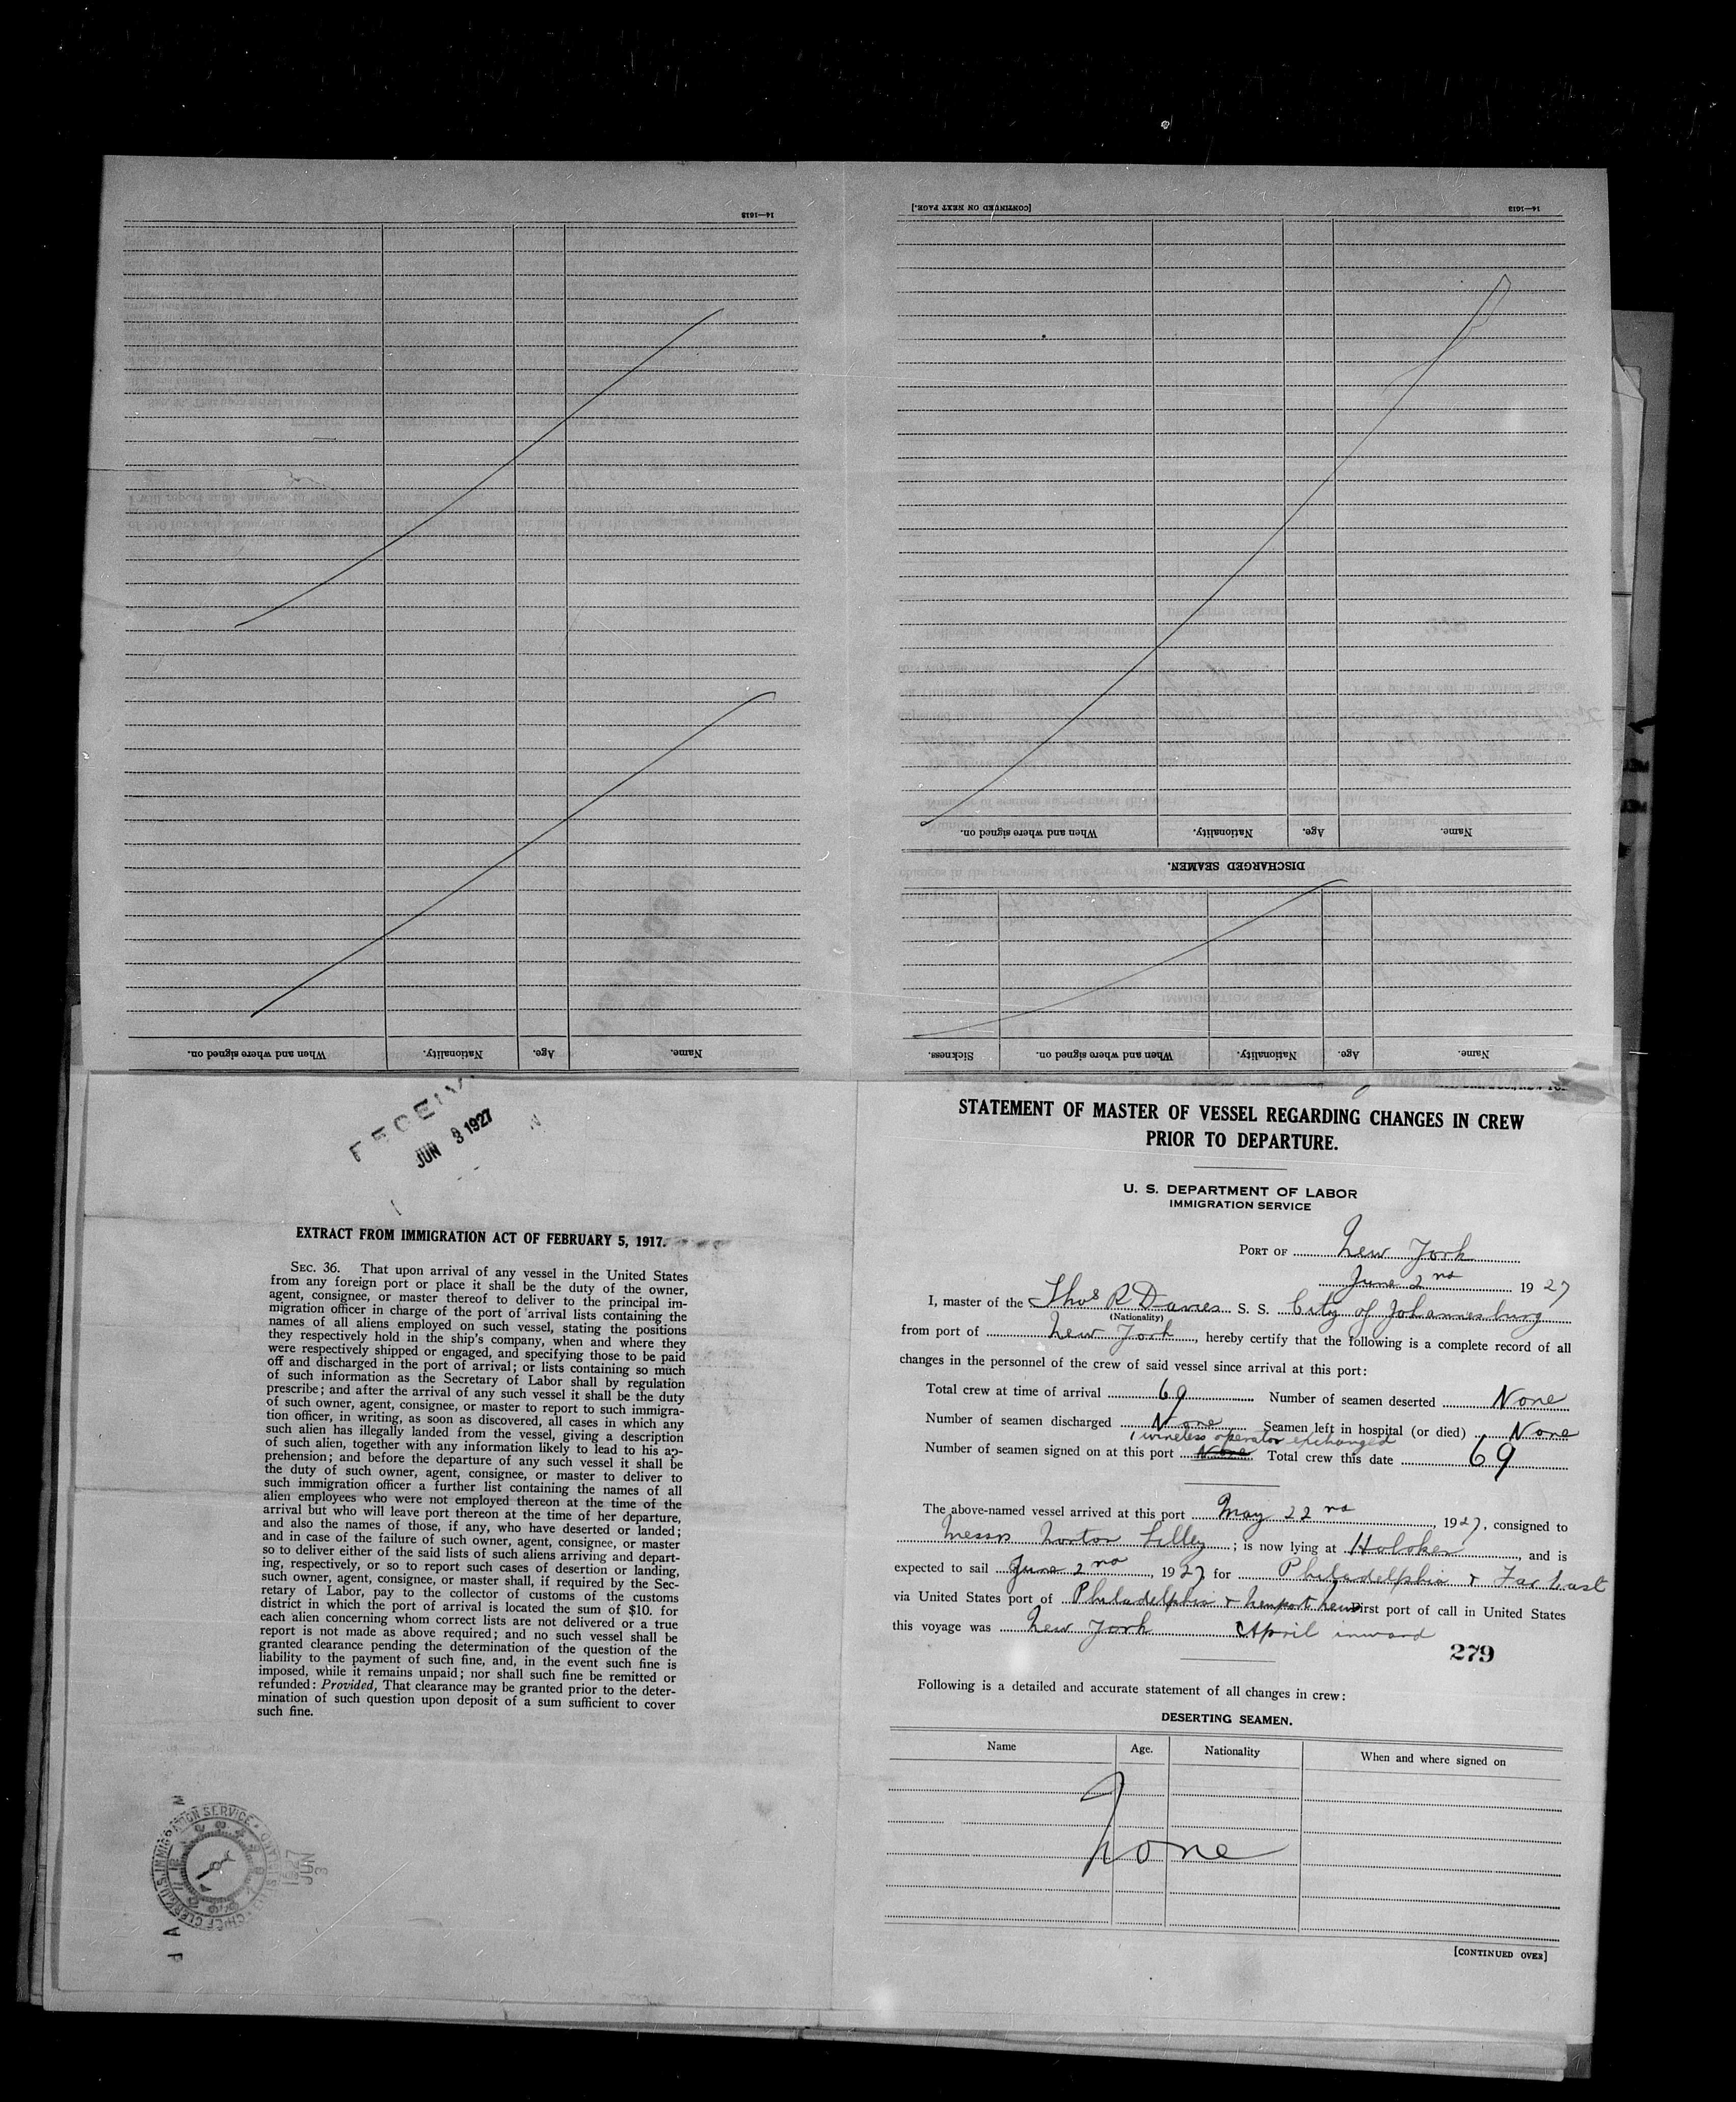 14—1613
When and where signed on.
Nationality.
Age.
Name.
[CONTINUED ON NEXT PAGE.]
14—1613
When and where signed on.
Nationality.
Age.
Name.
DISCHARGED SEAMEN.
Sickness.
When and where signed on.
Nationality.
Age.
Name.
JUN 3 1927
EXTRACT FROM IMMIGRATION ACT OF FEBRUARY 5, 1917.
SEC. 36. That upon arrival of any vessel in the United States
from any foreign port or place it shall be the duty of the owner,
agent, consignee, or master thereof to deliver to the principal im-
migration officer in charge of the port of arrival lists containing the
names of all aliens employed on such vessel, stating the positions
they respectively hold in the ship's company, when and where they
were respectively shipped or engaged, and specifying those to be paid
off and discharged in the port of arrival; or lists containing so much
of such information as the Secretary of Labor shall by regulation
prescribe; and after the arrival of any such vessel it shall be the duty
of such owner, agent, consignee, or master to report to such immigra-
tion officer, in writing, as soon as discovered, all cases in which any
such alien has illegally landed from the vessel, giving a description
of such alien, together with any information likely to lead to his ap-
prehension; and before the departure of any such vessel it shall be
the duty of such owner, agent, consignee, or master to deliver to
such immigration officer a further list containing the names of all
alien employees who were not employed thereon at the time of the
arrival but who will leave port thereon at the time of her departure,
and also the names of those, if any, who have deserted or landed;
and in case of the failure of such owner, agent, consignee, or master
so to deliver either of the said lists of such aliens arriving and depart-
ing, respectively, or so to report such cases of desertion or landing,
such owner, agent, consignee, or master shall, if required by the Sec-
retary of Labor, pay to the collector of customs of the customs
district in which the port of arrival is located the sum of $10. for
each alien concerning whom correct lists are not delivered or a true
report is not made as above required; and no such vessel shall be
granted clearance pending the determination of the question of the
liability to the payment of such fine, and, in the event such fine is
imposed, while it remains unpaid; nor shall such fine be remitted or
refunded: Provided, That clearance may be granted prior to the deter-
mination of such question upon deposit of a sum sufficient to cover
such fine.
U.S. IMMIGRATION SERVICE
CHIEF CLERK
1927
JUN
3
STATEMENT OF MASTER OF VESSEL REGARDING CHANGES IN CREW
PRIOR TO DEPARTURE.
U. S. DEPARTMENT OF LABOR
IMMIGRATION SERVICE
PORT OF New York
June 2nd 1927
I, master of the Thos R Davies S. S. City of Johannesburg
(Nationality)
from port of New York, hereby certify that the following is a complete record of all
changes in the personnel of the crew of said vessel since arrival at this port:
Total crew at time of arrival 69 Number of seamen deserted None
Number of seamen discharged None Seamen left in hospital (or died) None
1 wireless operator exchanged
Number of seamen signed on at this port None Total crew this date 69
The above-named vessel arrived at this port May 22nd, 1927, consigned to
Messrs Norton Lilley; is now lying at Hoboken, and is
expected to sail June 2nd, 1927 for Philadelphia & Far East
via United States port of Philadelphia & Newport News First port of call in United States
this voyage was New York April inward
279
Following is a detailed and accurate statement of all changes in crew:
DESERTING SEAMEN.
Name Age. Nationality When and where signed on
None
[CONTINUED OVER]